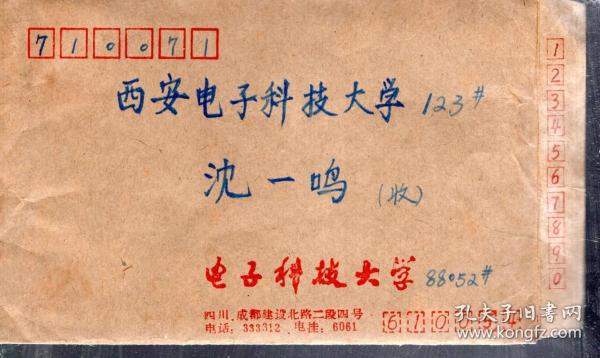 710071
西安电子科技大学 123#
沈一鸣 (收)
电子科技大学 88052#
四川.成都建设北路二段四号
电话: 333312 电挂: 6061
610054
1
2
3
4
5
6
7
8
9
0
孔夫子旧书网
www.kongfz.com